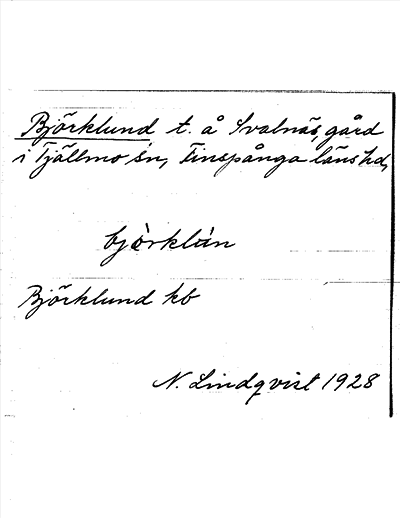 Björklund t. å Svalnäs, gård
i Tjällmo sn, Finspånga läns hd,
bjò̀rklùn
Björklund kb
N. Lindqvist 1928